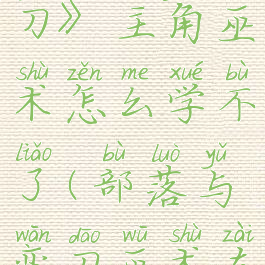 刀》主角巫
shù zěn me xué bù
术怎么学不
liǎo bù luò yǔ
了(部落与
wān dāo wū shù zài
弯刀巫术在